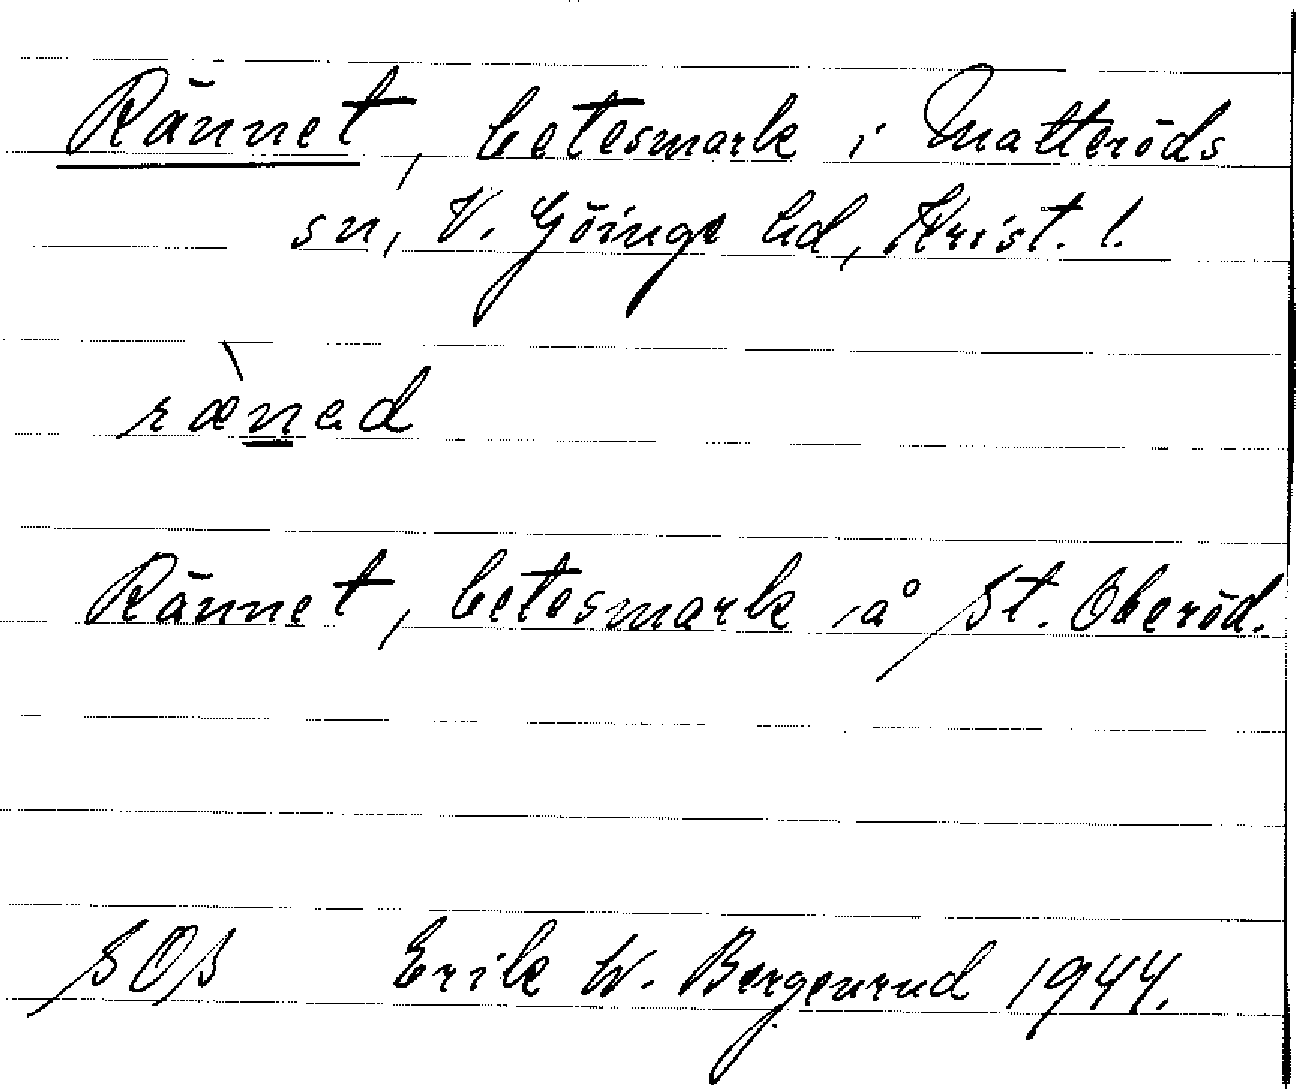 Rännet, betesmark i Matteröds
sn, V. Göinge hd, Krist. l.
ræ̀ned
Rännet, betesmark å St. Oberöd.
SOS Erik W. Bergenrud 1944.